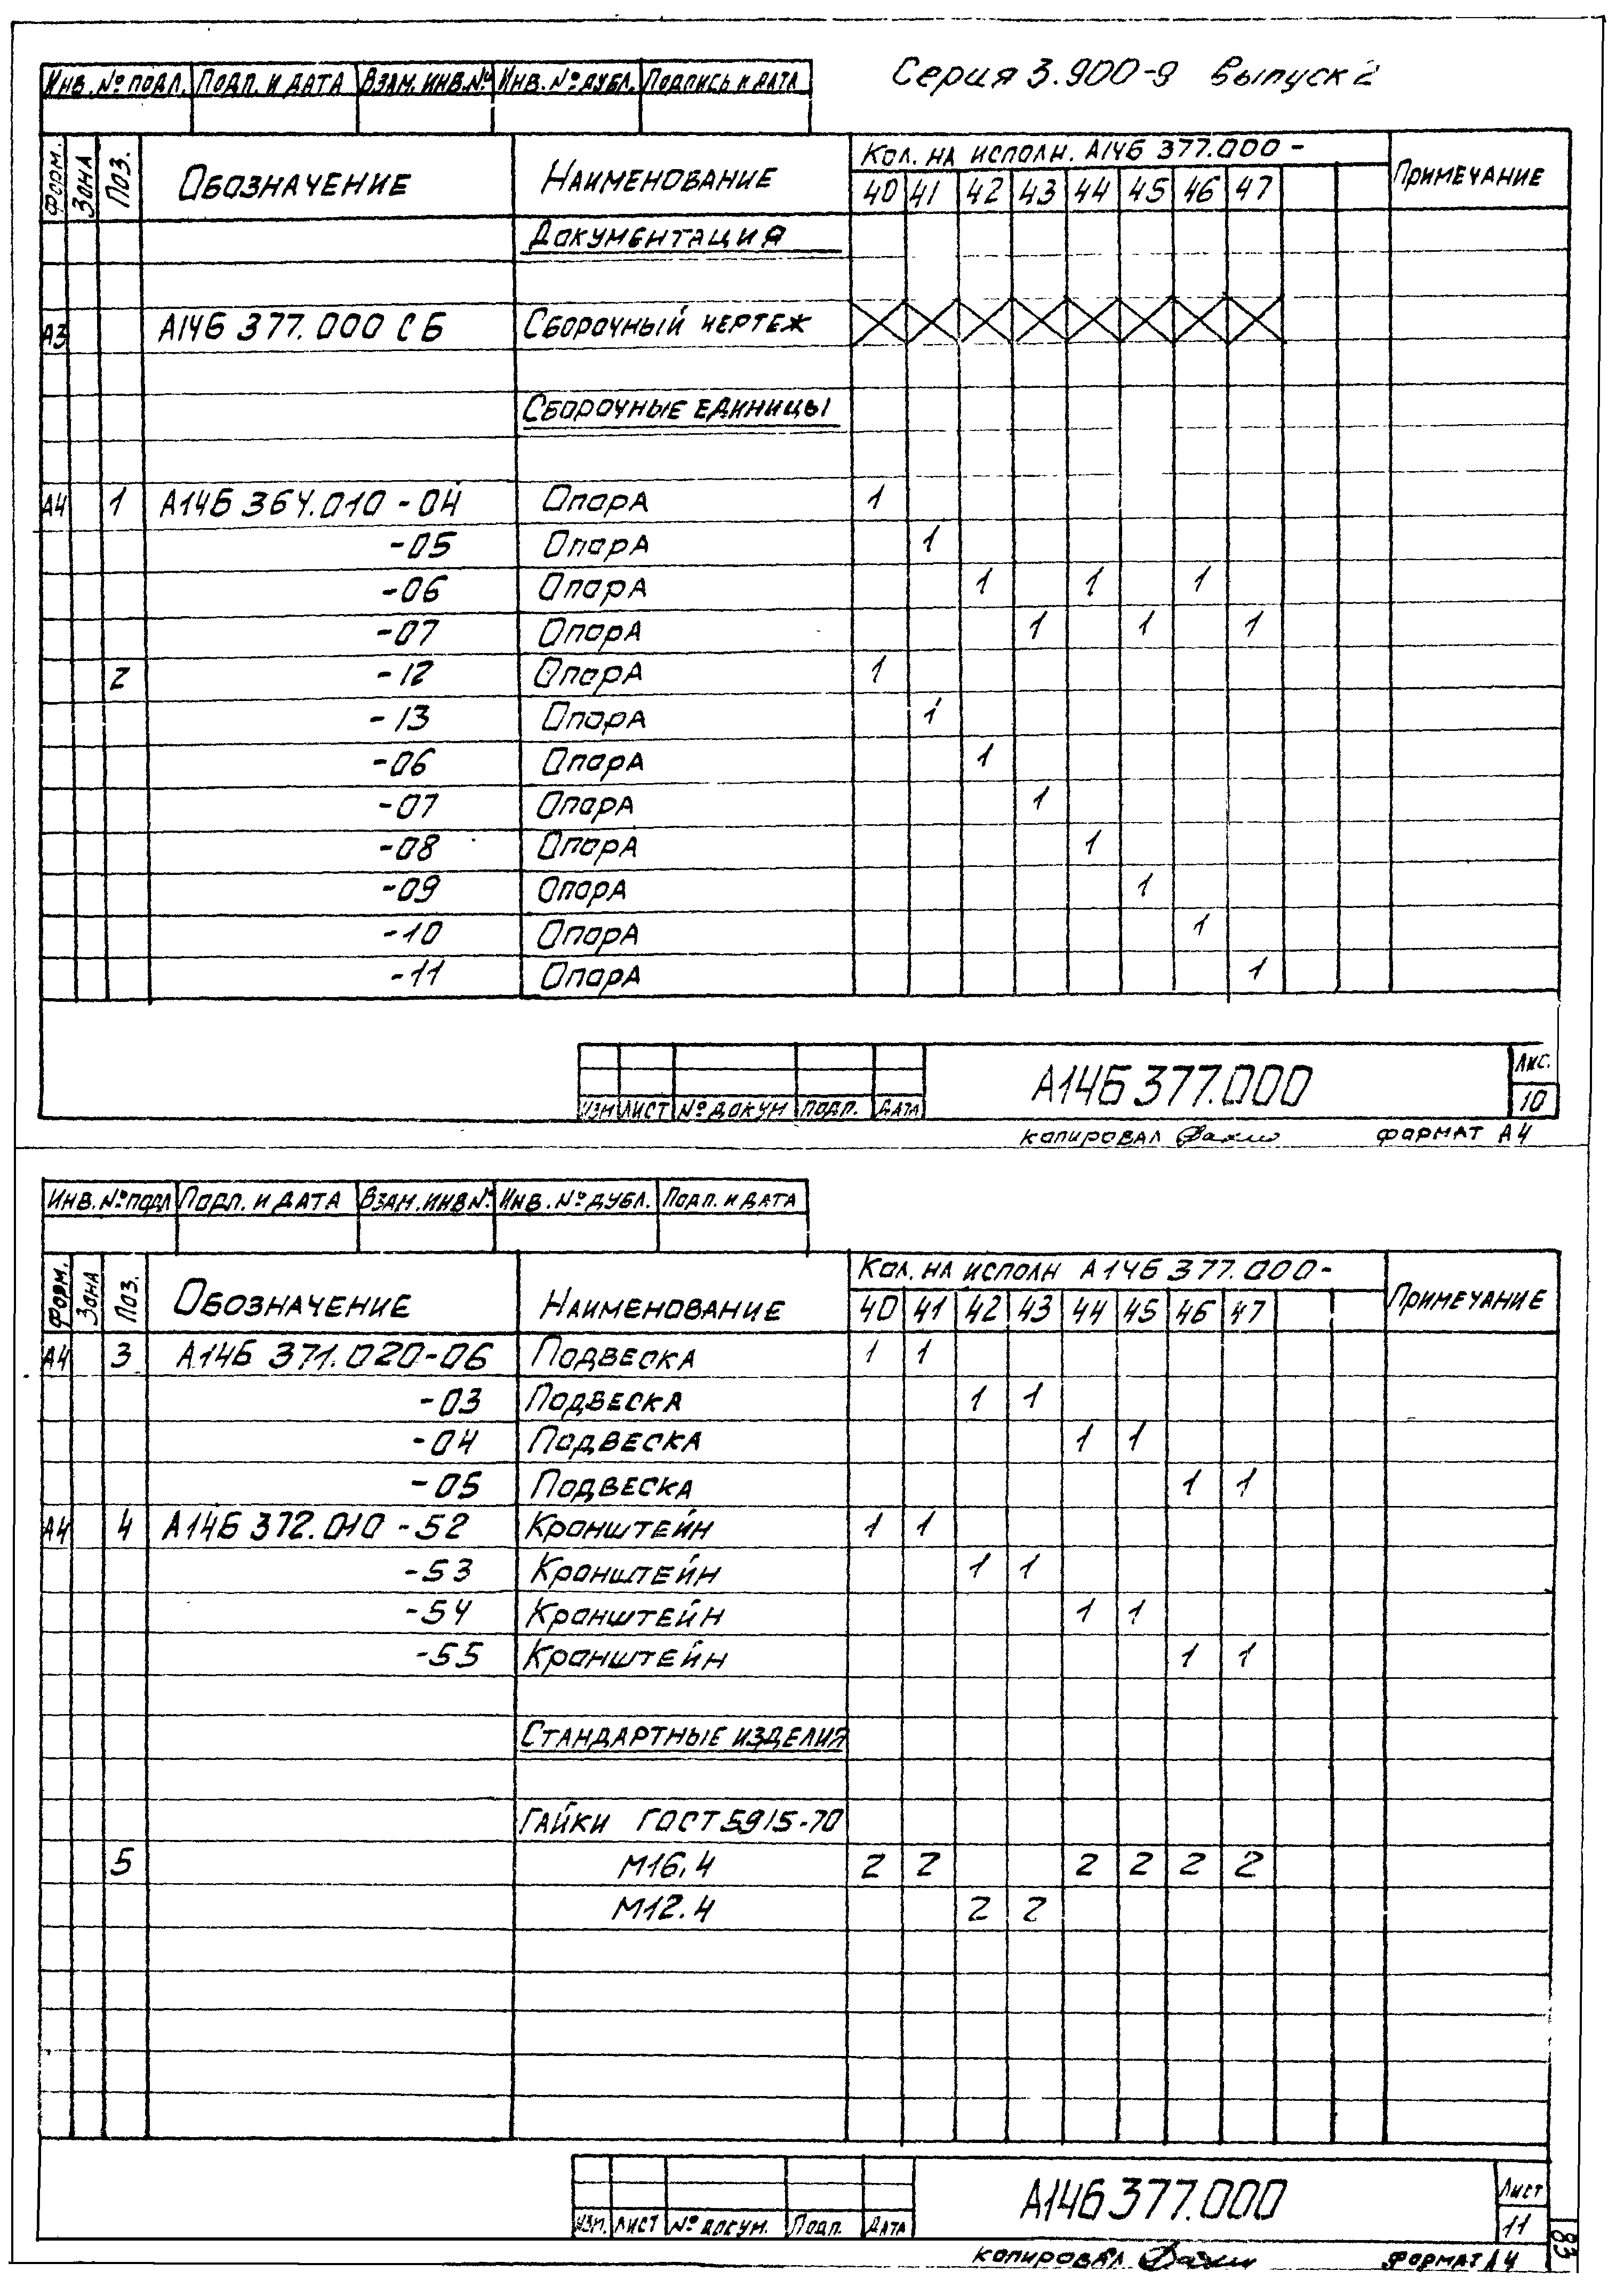 Серия 3.900-9 Выпуск 2
Инв. № подл. Подп. и дата Взам. инв. № Инв. № дубл. Подпись и дата
Форм. Зона Поз. Обозначение Наименование Кол. на исполн. А14Б 377.000 - Примечание
40 41 42 43 44 45 46 47
Документация
А3 А14Б 377.000 СБ Сборочный чертеж
Сборочные единицы
А4 1 А14Б 364.010 - 04 Опора 1
-05 Опора 1
-06 Опора 1 1 1
-07 Опора 1 1 1
2 -12 Опора 1
-13 Опора 1
-06 Опора 1
-07 Опора 1
-08 Опора 1
-09 Опора 1
-10 Опора 1
-11 Опора 1
А14Б 377.000 Лис.
10
Изм Лист № докум Подп. Дата
копировал формат А4
Инв. № подл Подп. и дата Взам. инв № Инв. № дубл. Подп. и дата
Форм. Зона Поз. Обозначение Наименование Кол. на исполн А14Б 377.000- Примечание
40 41 42 43 44 45 46 47
А4 3 А14Б 371.020-06 Подвеска 1 1
-03 Подвеска 1 1
-04 Подвеска 1 1
-05 Подвеска 1 1
А4 4 А14Б 372.010 -52 Кронштейн 1 1
-53 Кронштейн 1 1
-54 Кронштейн 1 1
-55 Кронштейн 1 1
Стандартные изделия
Гайки ГОСТ 5915-70
5 М16.4 2 2 2 2 2 2
М12.4 2 2
А14Б 377.000 Лист
11
Изм. Лист № докум. Подп. Дата
копировал формат А4
83